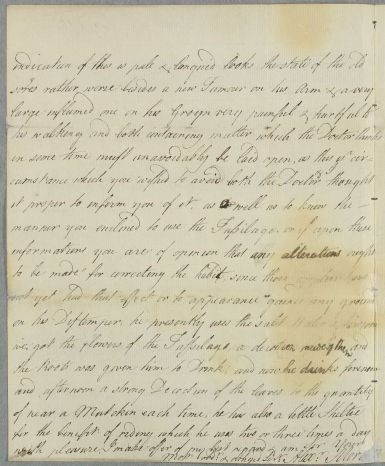 indication of this is pale & languid looks the state of the old
sores rather worse besides a new Tumour on his Arm & a very
large inflamed one on his Groyn very painful & hurtful to
his walking and both containing matter which the Doctor thinks
in some time must unavoidably be laid open, as this is a cir-
cumstance which you wished to avoid both the Doctor & I thought
it proper to inform you of it. as well as to know the
manner you enclined to use the Tussilago, or if upon these
informations you are of opinion that any alterations ought
to be made for correcting the habit, since these
not yet had that effect or to appearance gained any ground
on his Distemper. he presently uses the salt Water
we got the flowers of the Tussilago, a decoction and
the Roob was given him to Drink, and now he drinks forenoon
and afternoon a strong Decoction of the leaves to the quantity
of near a Mutchkin each time, he has also a little Sheltie
for the benefit of rideing which he uses two or three times a day
with pleasure. I make offer of my best regards & am Sir Your
Most